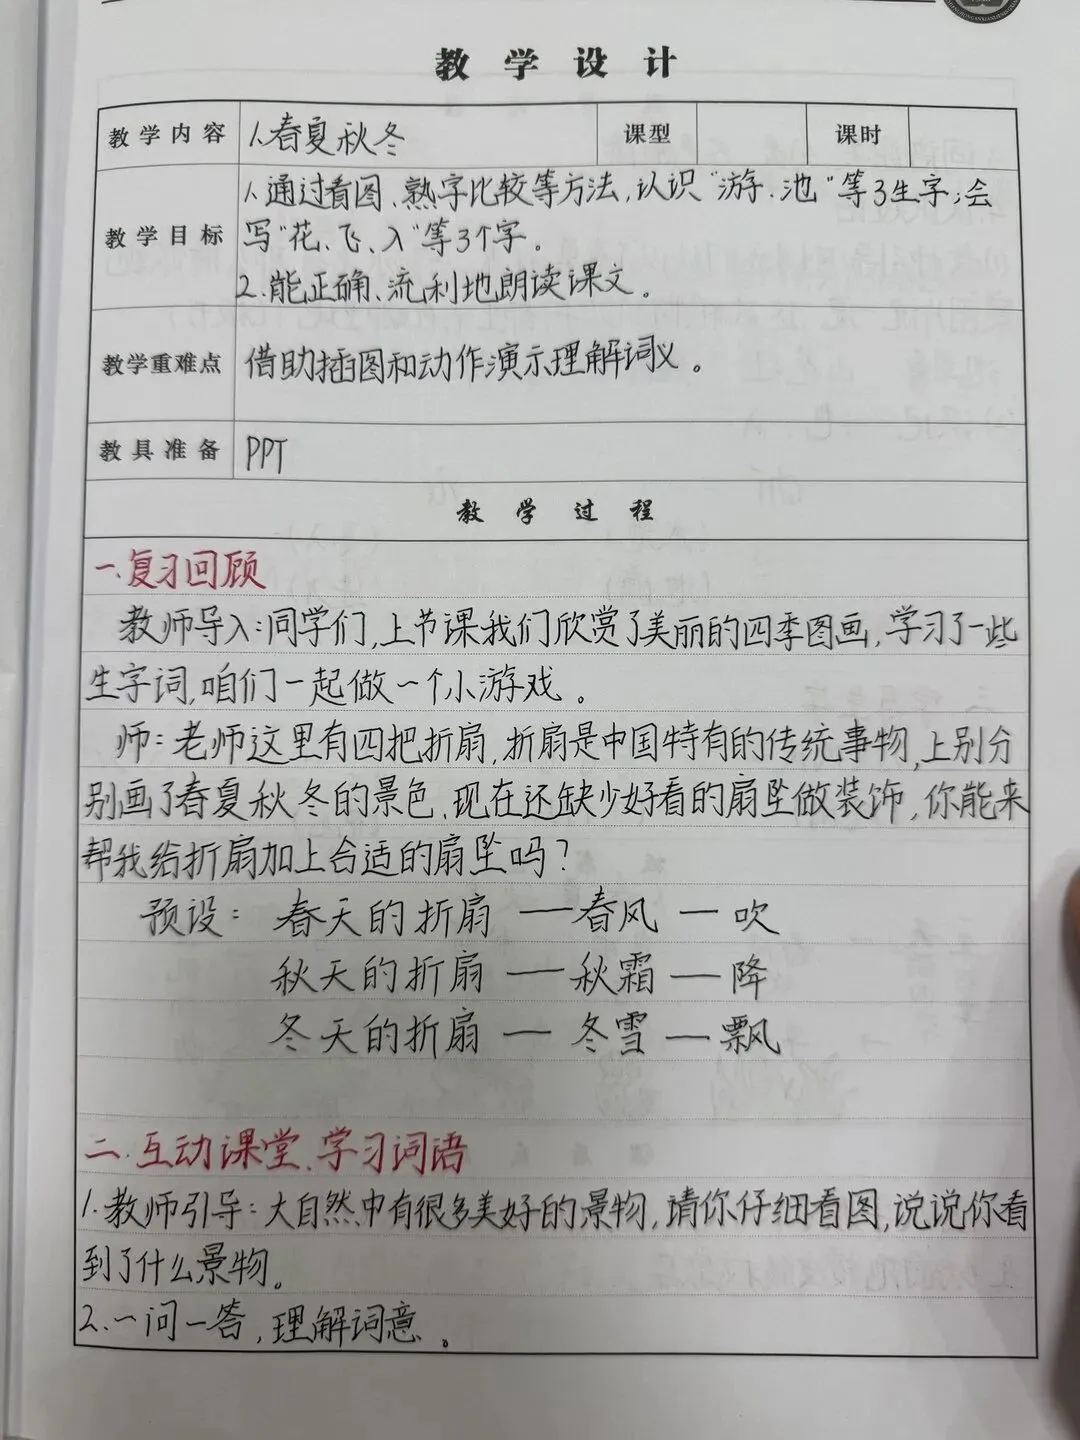 教学设计
教学内容 1.春夏秋冬 课型 课时
教学目标 1.通过看图、熟字比较等方法,认识“游、池”等3生字;会
写“花、飞、入”等3个字。
2.能正确、流利地朗读课文。
教学重难点 借助插图和动作演示理解词义。
教具准备 PPT
教学过程
一.复习回顾
教师导入:同学们,上节课我们欣赏了美丽的四季图画,学习了一些
生字词,咱们一起做一个小游戏。
师:老师这里有四把折扇,折扇是中国特有的传统事物,上别分
别画了春夏秋冬的景色,现在还缺少好看的扇坠做装饰,你能来
帮我给折扇加上合适的扇坠吗?
预设: 春天的折扇 —春风 —吹
秋天的折扇 —秋霜—降
冬天的折扇 — 冬雪—飘
二.互动课堂、学习词语
1.教师引导:大自然中有很多美好的景物,请你仔细看图,说说你看
到了什么景物。
2.一问一答,理解词意。